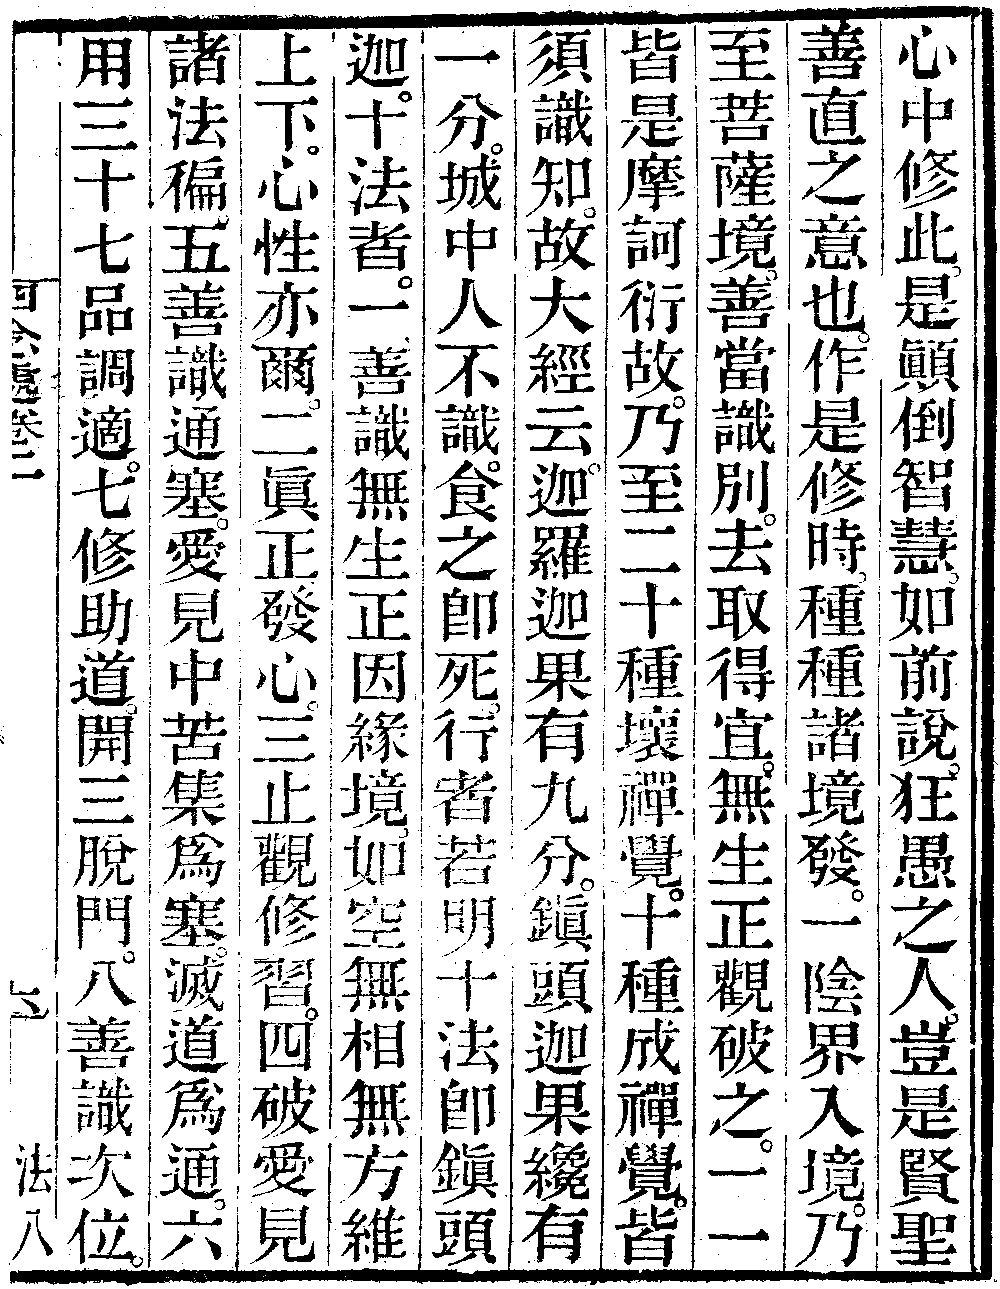 心中修此。是顚倒智慧。如前說。狂愚之人。豈是賢聖
善直之意也。作是修時。種種諸境發。一陰界入境。乃
至菩薩境。善當識別。去取得宜。無生正觀破之。一一
皆是摩訶衍故。乃至二十種壞禪覺。十種成禪覺。皆
須識知。故大經云。迦羅迦果有九分。鎭頭迦果纔有
一分。城中人不識。食之卽死。行者若明十法卽鎭頭
迦。十法者。一善識無生正因緣境。如空無相無方維
上下。心性亦爾。二眞正發心。三止觀修習。四破愛見
諸法徧。五善識通塞。愛見中苦集爲塞。滅道爲通。六
用三十七品調適。七修助道。開三脫門。八善識次位。
卷二
法八